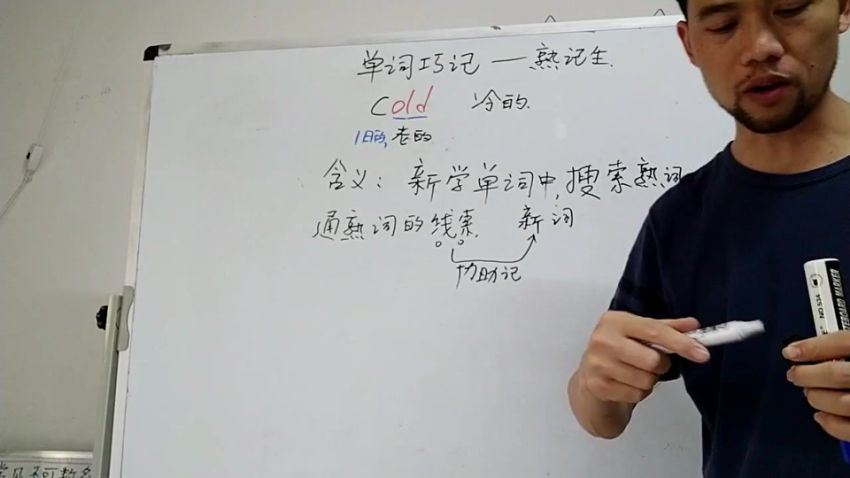 单词巧记 — 熟记生.
cold 冷的.
旧的, 老的
含义: 新学单词中, 搜索熟词
通熟词的线索 新词
协助记
NO.534